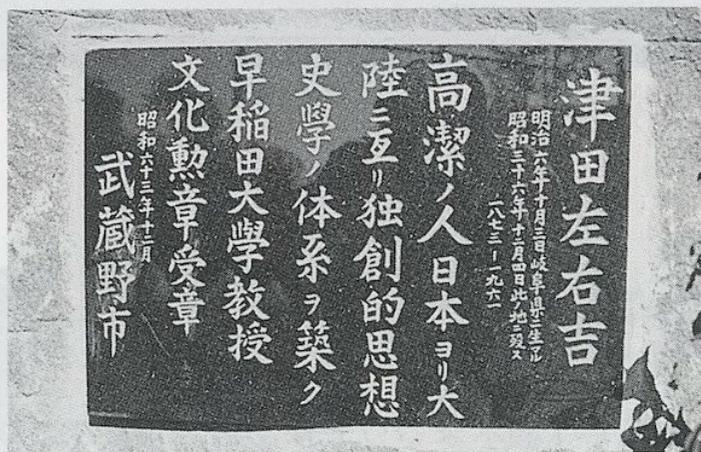 津田左右吉
明治六年十月三日岐阜県ニ生マル
昭和三十六年十二月四日此ノ地ニ歿ス
一八七三ー一九六一
高潔ノ人日本ヨリ大
陸ニ亙リ独創的思想
史學ノ体系ヲ築ク
早稲田大學教授
文化勲章受章
昭和六十三年十二月
武蔵野市